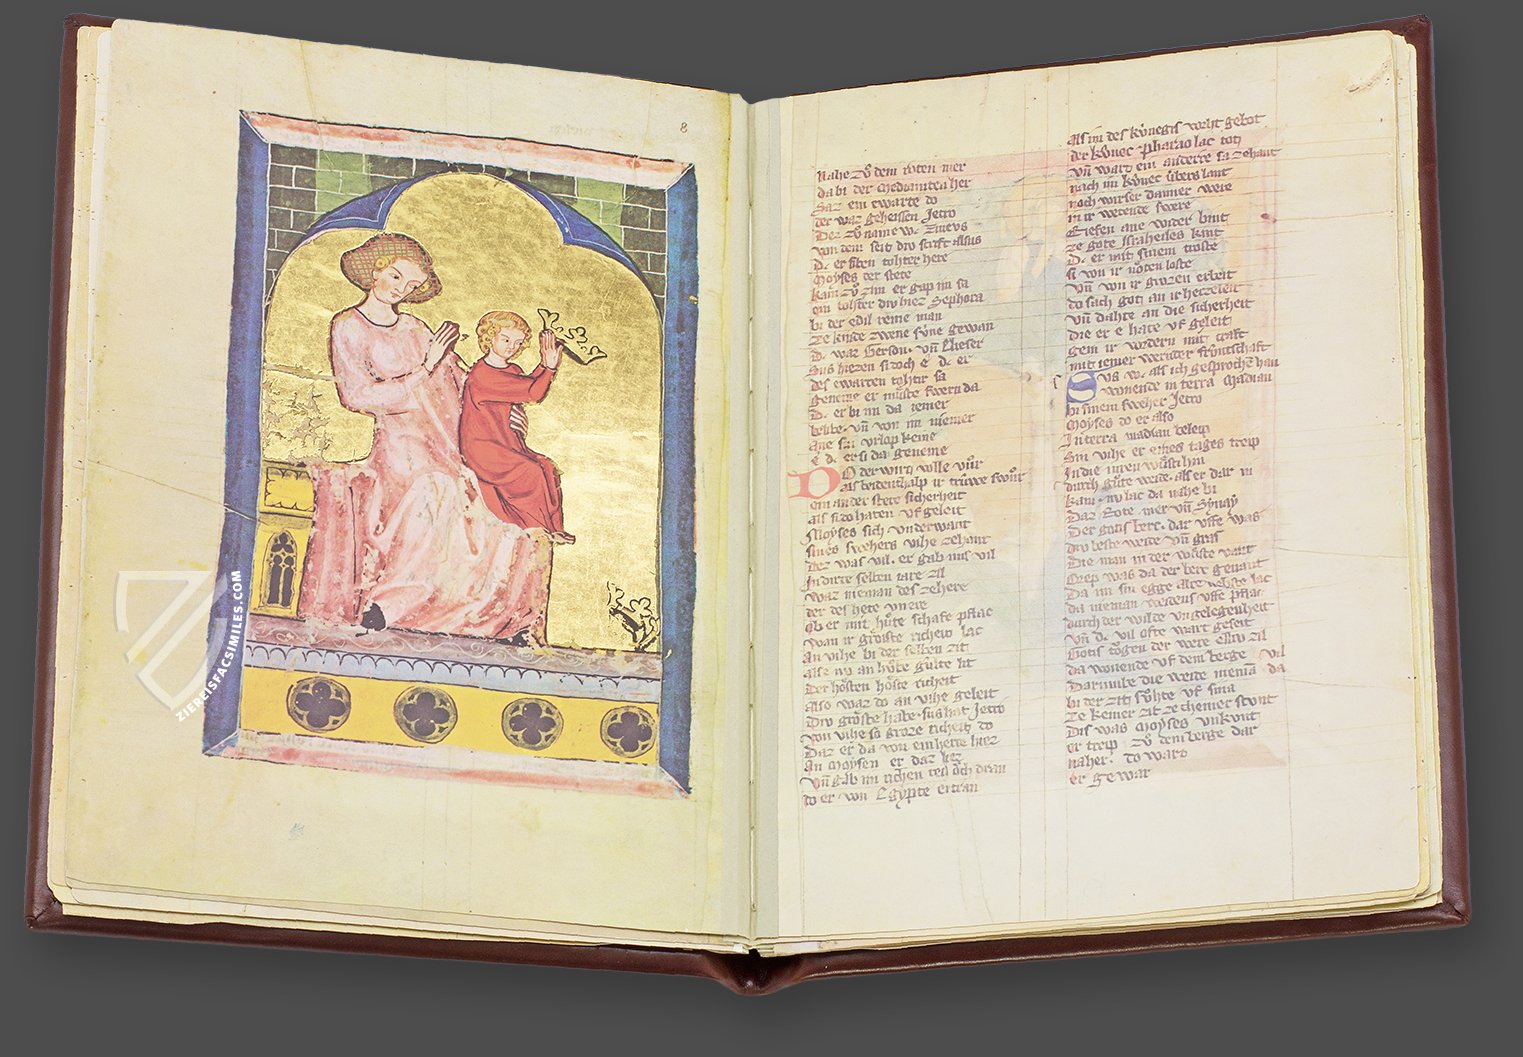 8
ZIEREISFACSIMILES.COM
Nahe zů dem roten mer
da bi der Medianitea her
Saz ein ewarte do
der waz geheissen Jetro
Der zů name w. Zinevs
von dem seit div scrift alsus
D. er siben tohter hete
Moyses der stete
kam zů zim er gap im sa
ein tohter div hiez Sephora
bi der edil reine man
ze kinde zwene sv́ne gewan
D. waz Gerson. vn̄ Elieser
Sus hiezen si doch e d. er
des ewarten tohtir sa
geneme er můste swern da
D. er bi im da iemer
belibe. vn̄ von im niemer
Ane sin vrlop keine
e d. er si da geneme
DO der wirt wolle vůr
als beidenthalp ir trúwe swůr
ein ander stete sicherheit
als si do haten vf geleit
Moyses sich vnderwant
sines swehers vihe zehant
Der was vil. er gab mit vil
In dirre selben iare zil
waz nieman des zehere
der des hete vnere
Ob er mit hůte schafe pflac
wan ir groiste richeit lac
An vihe bi der selben zit
Als e nv an hohe gůlte lit
Der hosten hoste richeit
Also waz do an vihe geleit
Div groste habe. sus hat Jetro
von vihe so groze richeit do
Daz er da von ein herre hiez
An Moysen er daz liez
vn̄ gab im richen teil och dran
do er von Egypte entran
Als im des kv́negis vorht gebot
der kv́nec Pharao lac tot
vn̄ wart ein anderre sa zehant
nach im kv́nec v́bers lant
noch wirser danner were
in ir wernde swere
Liesen ane wider bint
ze gote Israheles kint
D. er mit sinem troste
si von ir noten loste
vn̄ von ir grozen erbeit
do sach got an ir herzeleit
vn̄ dahte an die sicherheit
die er e hate vf geleit
gein ir vordern mit craft
mit iemer wernder frv́ntschaft
Sus w. als ich gesprochē han
wonende in terra Madian
bi sinem sweher Jetro
Moyses do er also
In terra madian beleip
Sin vihe er eines tages treip
In die innren wůsti hin
durch gůte weide. als er dar in
kam. nv lac da nahe bi
Daz Rote mer vn̄ Synay
Der gotis berc. dar vffe was
div beste weide vn̄ gras
Die man in der wůste vant
Orep was da der berc genant
Da im sin egge aller nehste lac
da nieman weidens vffe pflac
durch der wilde vngelegenheit
vn̄ d. vil ofte wart geseit
Gotis togen der were ellv zil
da wonende vf dem berge vil
Dar mitte die weide nieman da
bi der zit sůhte vf sina
ze keiner zit ze cheiner stvnt
Dis was Moyses vnkvnt
er treip zů dem berge dar
naher. do wart
er gewar